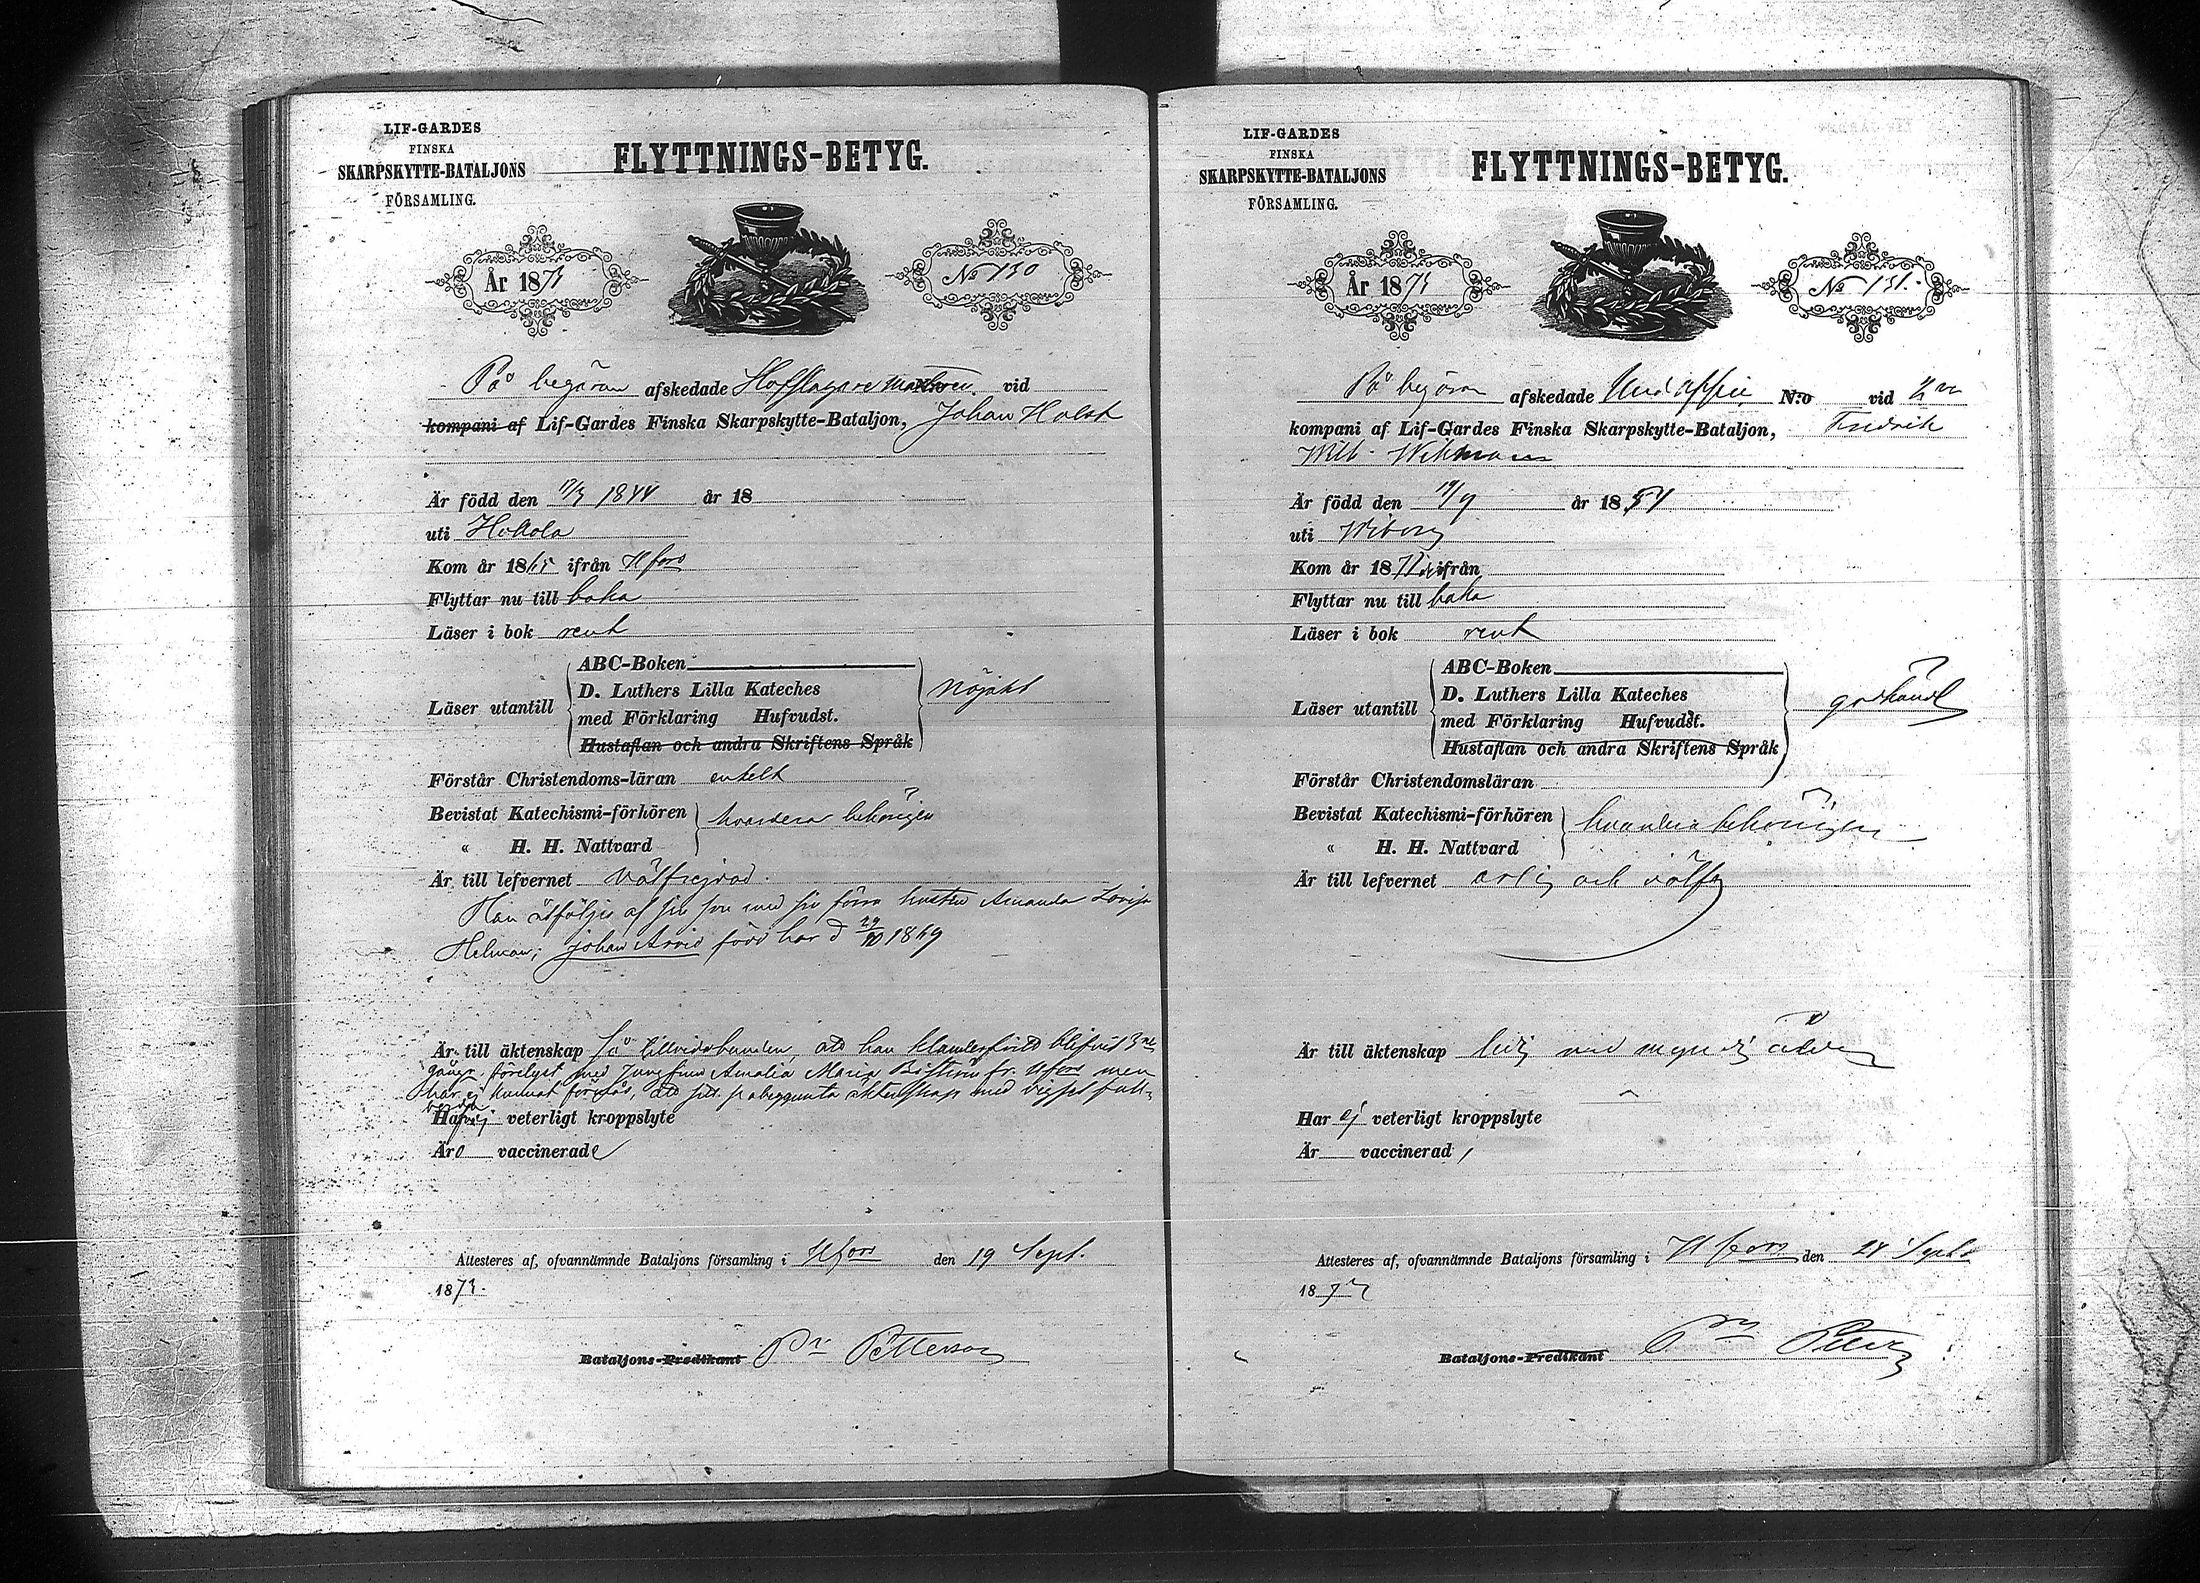 LIF-GARDES
FINSKA
SKARPSKYTTE-BATALJONS
FÖRSAMLING.
FLYTTNINGS-BETYG.
År 1873
No 130
På begäran afskedade Hofslagare vid
kompani af Lif-Gardes Finska Skarpskytte-Bataljon, Johan Holst
Är född den 17/3 1844 år 18
uti Hollola
Kom år 1865 ifrån Hfors
Flyttar nu till baka
Läser i bok rent
Läser utantill
ABC-Boken
D. Luthers Lilla Kateches
med Förklaring Hufvudst.
Hustaflan och andra Skriftens Språk
nöjakt
Förstår Christendoms-läran enkelt
Bevistat Katechismi-förhören
« H. H. Nattvard
hvardera behörigen
Är till lefvernet välfrejdad.
Han åtföljes af sin son med sin förra hustru Amanda Lovisa
Helman; Johan Arvid född här d 29/10 1869
Är till äktenskap så tillvida bunden, att han klanderfritt blifvit 3ne
gångr. förelyst med Jungfrun Amalia Maria fr. Hfors men
har ej kunnat förmås, att sitt äktenskap med vigsel full-
borda
Har ej veterligt kroppslyte
Äro vaccinerade
Attesteres af, ofvannämnde Bataljons församling i Hfors den 19 Sept.
1873.
Bataljons-Predikant Pr Petterson
LIF-GARDES
FINSKA
SKARPSKYTTE-BATALJONS
FÖRSAMLING.
FLYTTNINGS-BETYG.
År 1873
No 131.
På begäran afskedade Underoffic. N:o vid 2ra
kompani af Lif-Gardes Finska Skarpskytte-Bataljon, Fredrik
Wilh. Wikman
Är född den 19/9 år 1851
uti Wiborg
Kom år 187 ifrån
Flyttar nu till baka
Läser i bok rent
Läser utantill
ABC-Boken
D. Luthers Lilla Kateches
med Förklaring Hufvudst.
Hustaflan och andra Skriftens Språk
godkändt
Förstår Christendomsläran
Bevistat Katechismi-förhören
« H. H. Nattvard
hvardera behörigen
Är till lefvernet ärlig och välfr
Är till äktenskap ledig med myndig ålder
Har ej veterligt kroppslyte
Är vaccinerad
Attesteres af, ofvannämnde Bataljons församling i Hfors den 24 Sept
1873
Bataljons-Predikant Pr Petterson